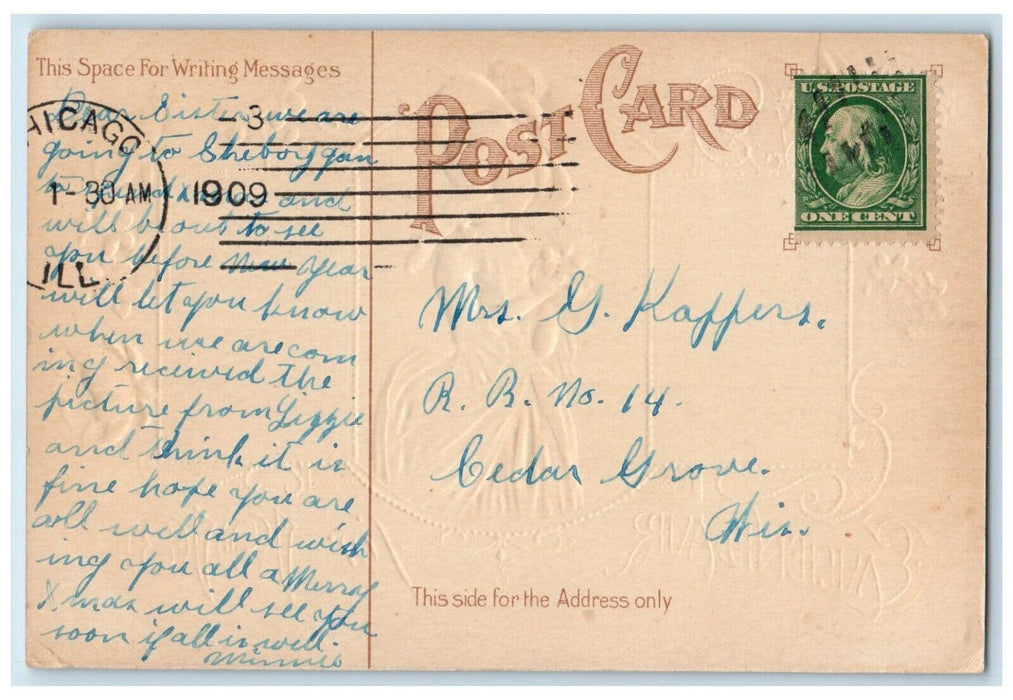 This Space For Writing Messages
POST CARD
U.S. POSTAGE
ONE CENT
CHICAGO
3
1-30 AM
1909
ILL
Dear Sister we are
going to Sheboygan
to and
will be out to see
you before New Year
will let you know
when we are com
ing received the
picture from Lizzie
and think it is
fine hope you are
all well and wish
ing you all a Merry
Xmas will see you
soon if all is well.
Minnie
Mrs. G. Kappers.
R. R. No. 14.
Cedar Grove.
Wis.
This side for the Address only